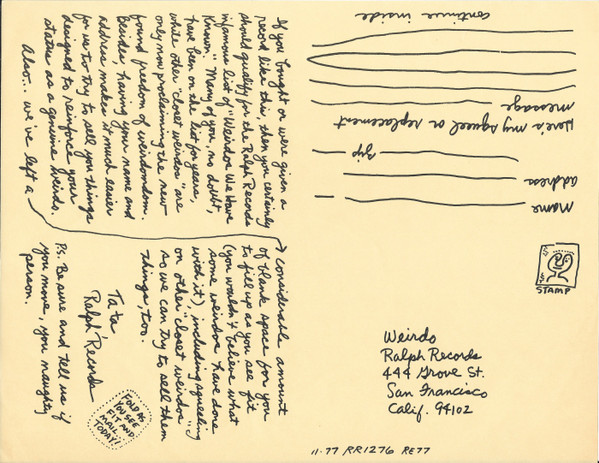 If you bought or were given a
record like this, then you certainly
should qualify for the Ralph Records
infamous list of "Weirdos We Have
Known." Many of you, no doubt,
have been on the list for years,
while other "closet weirdos" are
only now proclaiming the new-
found freedom of weirdondom.
Besides, having your name and
address makes it much easier
for us to try to sell you things
designed to reinforce your
status as a genuine weirdo.
Also... we've left a
considerable amount
of blank space for you
to fill up as you see fit
(you wouldn't believe what
some weirdos have done
with it), including squealing
on other "closet weirdos"
so we can try to sell them
things, too.
Ta ta
Ralph Records
P.s. Be sure and tell us if
you move, you naughty
person.
FOLD AS
YOU SEE
FIT AND
MAIL
TODAY!
Name
address
Zip
Here's my squeel or replacement
message
continue inside
STAMP
Weirdo
Ralph Records
444 Grove St.
San Francisco
Calif. 94102
11-77 RR1276 RE77